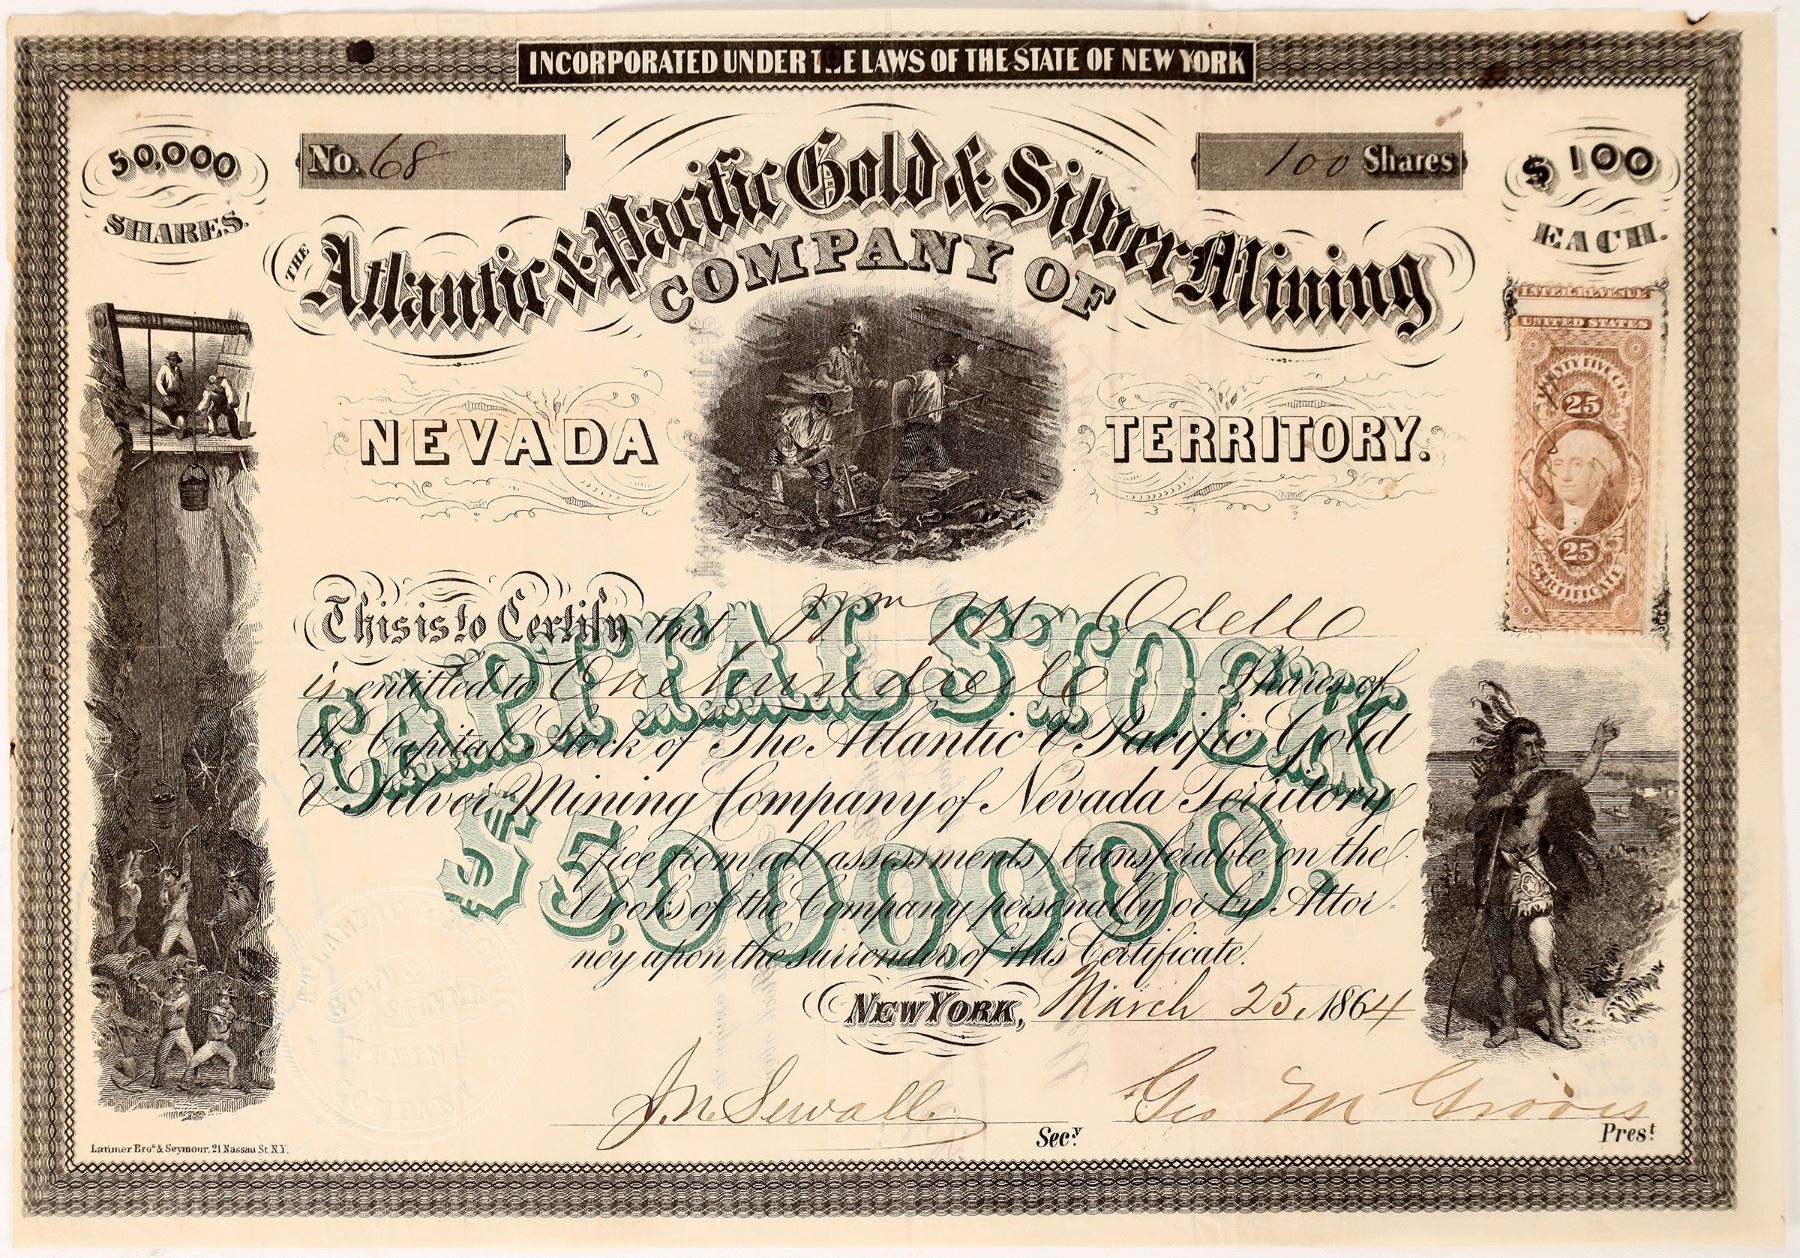 INCORPORATED UNDER THE LAWS OF THE STATE OF NEW YORK
50,000
SHARES.
No. 68
100 Shares
$100
EACH.
THE Atlantic & Pacific Gold & Silver Mining
COMPANY OF
NEVADA TERRITORY.
INTER. REVENUE
UNITED STATES
25
25
CERTIFICATE
This is to Certify that Wm M. Odell
is entitled to One hundred Shares of
the Capital Stock of The Atlantic & Pacific Gold
& Silver Mining Company of Nevada Territory
free from all assessments, transferable on the
Books of the Company personally or by Attor-
ney upon the surrender of this Certificate.
CAPITAL STOCK
$5,000,000.
NEW YORK, March 25, 1864
ATLANTIC & PACIFIC
GOLD &
SILVER
MINING
COMPANY
J.N. Sewall Secy.
Geo M Groves Prest
Latimer Bros & Seymour, 21 Nassau St. N.Y.